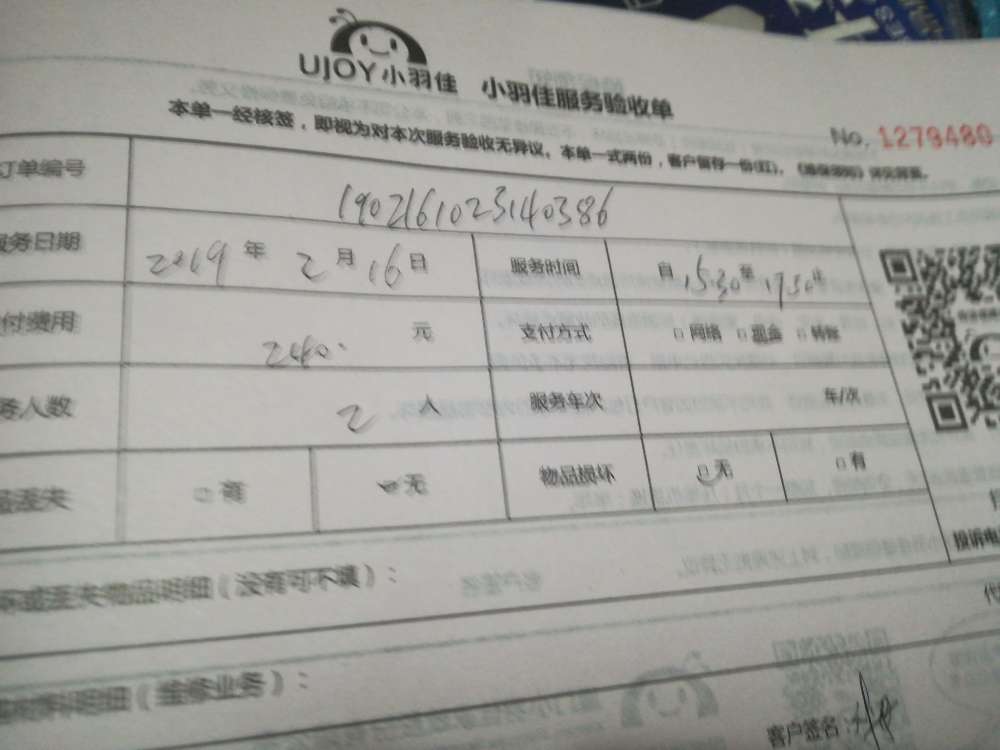 UJOY小羽佳 小羽佳服务验收单
No. 1279480
本单一经核签，即视为对本次服务验收无异议。本单一式两份，客户留存一份(红)。
订单编号 1902161023140386
服务日期 2019 年 2 月 16 日 服务时间 自 15:30 至 17:30 止
付费用 240. 元 支付方式 □ 网络 □ 现金 □ 转账
务人数 2 人 服务车次 车/次
丢失 □ 有 无 物品损坏 □ 无 □ 有
投诉电
坏或丢失物品明细（没有可不填）：
材料明细（维修业务）：
客户签名：